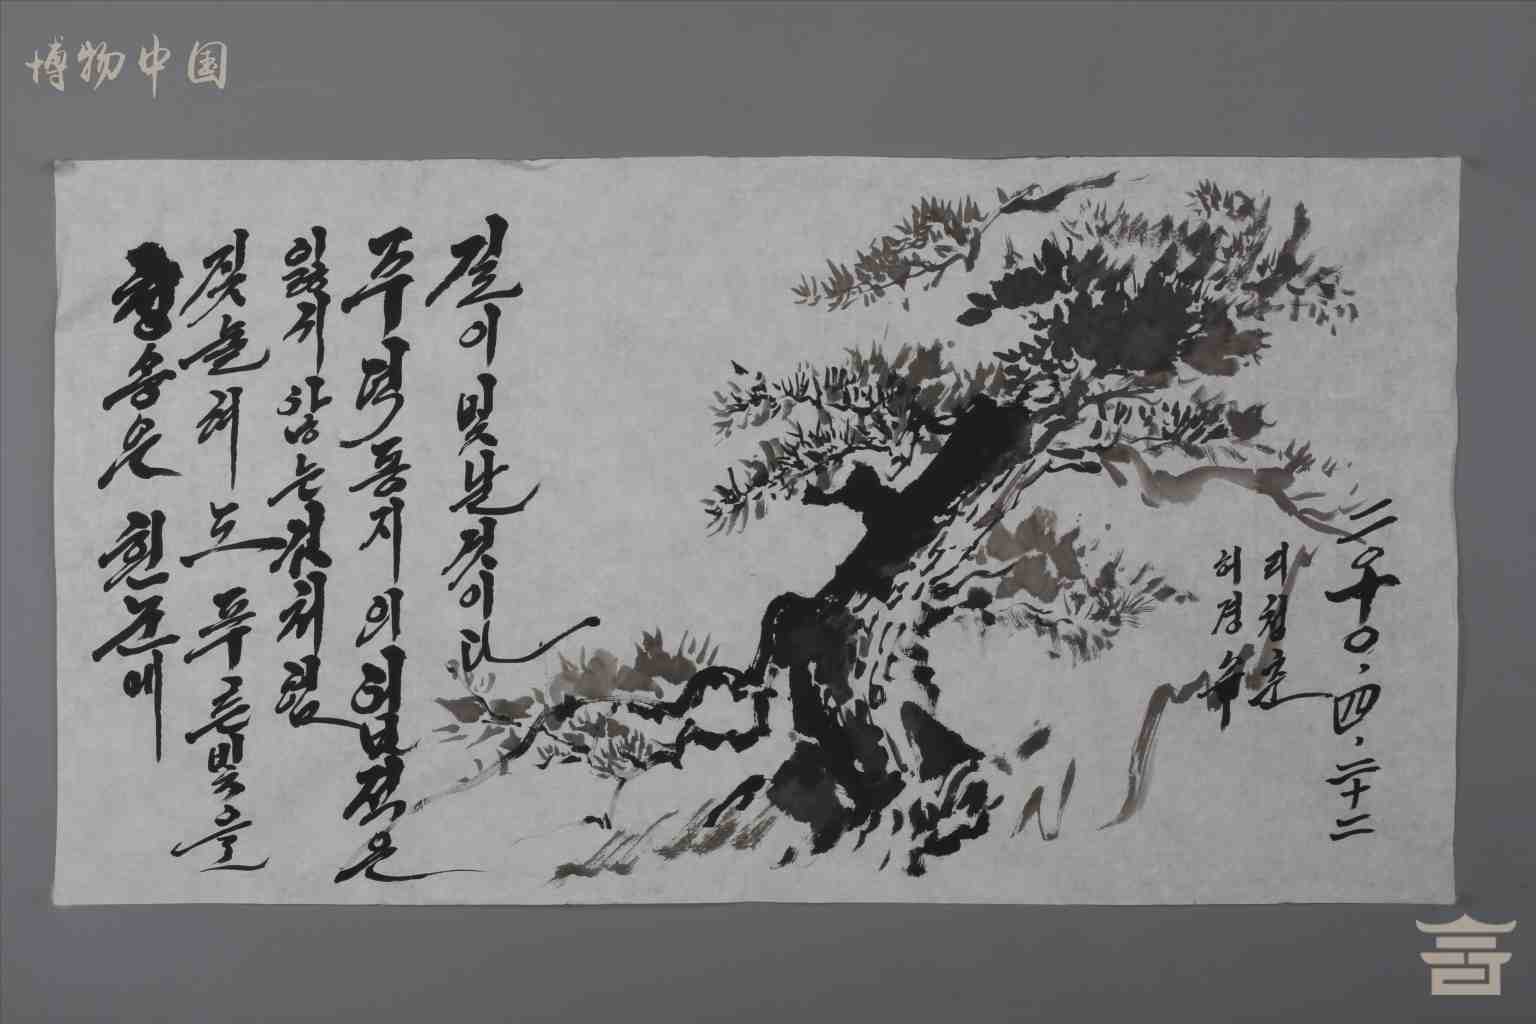 博物中国
청송은 흰눈에
짓눌려도 푸른빛을
잃지 않는것처럼
주덕동지의 업적은
길이 빛날것이다
허경숙
二〇十〇.四.二十二